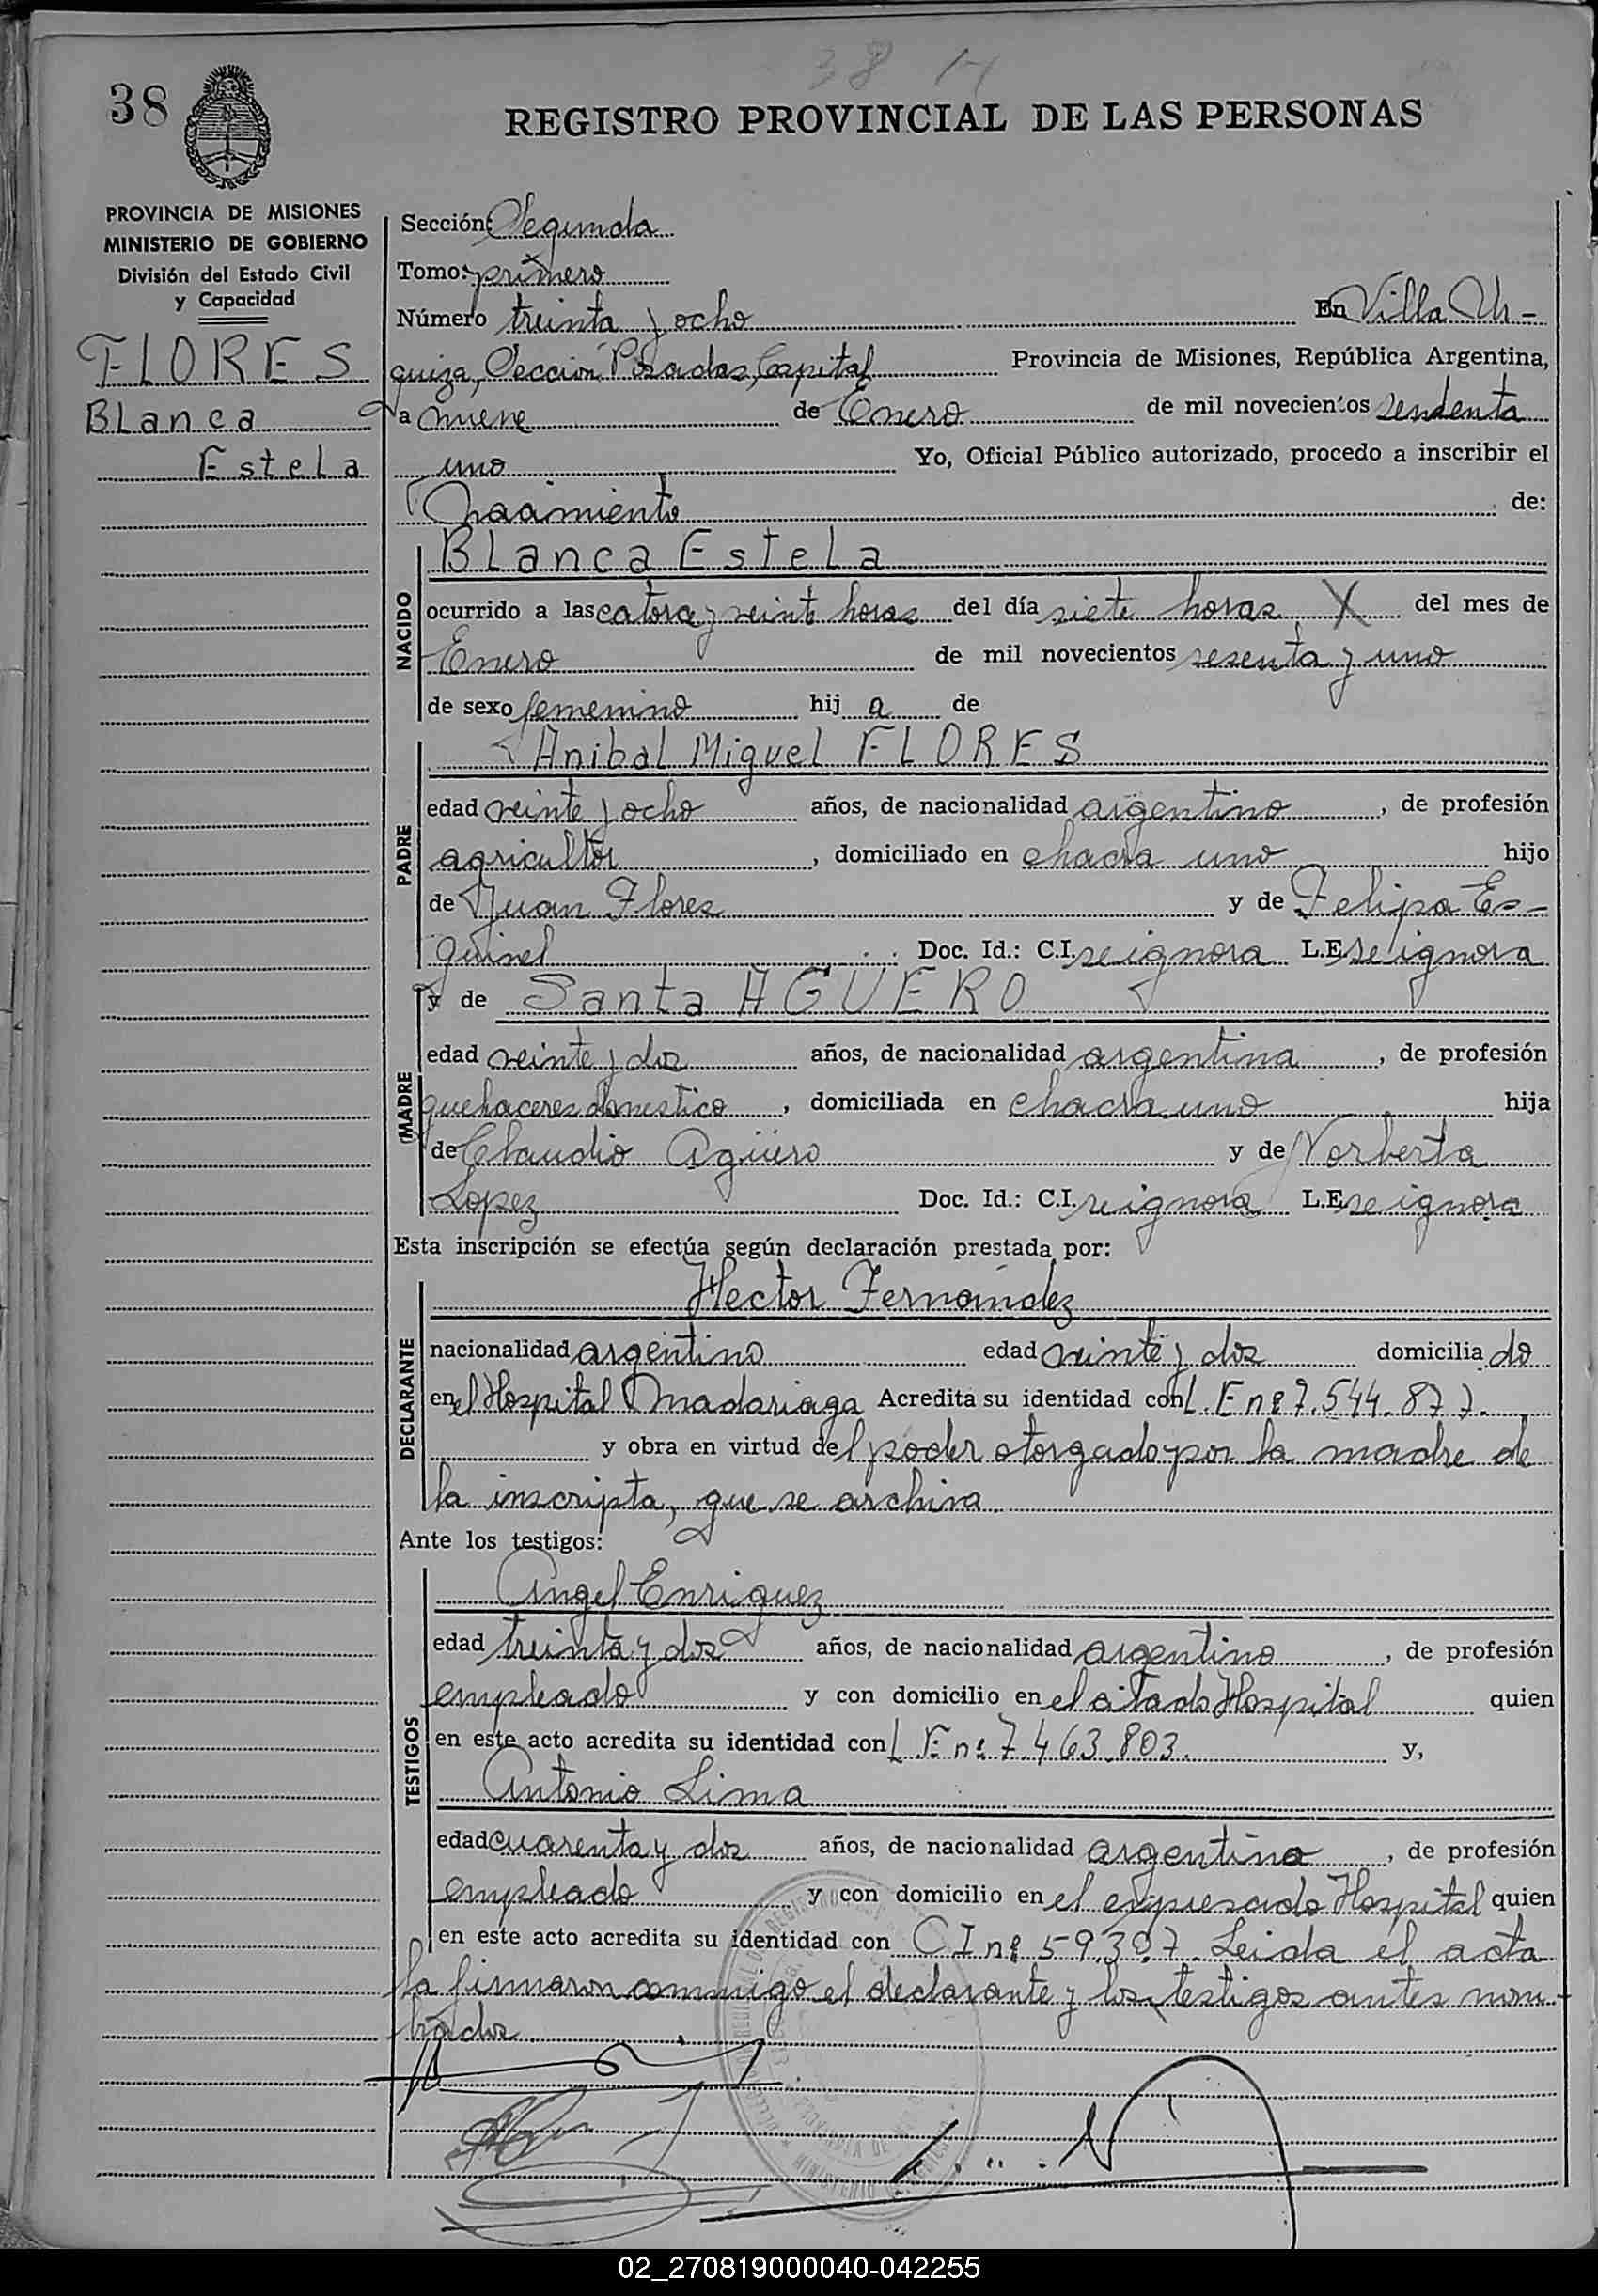 38 H
38
REGISTRO PROVINCIAL DE LAS PERSONAS
PROVINCIA DE MISIONES
MINISTERIO DE GOBIERNO
División del Estado Civil
y Capacidad
FLORES
Blanca
Estela
Sección: Segunda
Tomo: primero
Número treinta y ocho En Villa Ur-
quiza, Sección Posadas, Capital Provincia de Misiones, República Argentina,
a nueve de Enero de mil novecientos sesenta
uno Yo, Oficial Público autorizado, procedo a inscribir el
Nacimiento de:
NACIDO
Blanca Estela
ocurrido a las catorce y veinte horas del día siete horas X del mes de
Enero de mil novecientos sesenta y uno
de sexo femenino hij a de
PADRE
Anibal Miguel FLORES
edad veinte y ocho años, de nacionalidad argentino, de profesión
agricultor, domiciliado en chacra uno hijo
de Juan Flores y de Felipa Es-
quinel Doc. Id.: C.I. se ignora L.E. se ignora
MADRE
y de Santa AGÜERO
edad veinte y dos años, de nacionalidad argentina, de profesión
quehaceres domestico, domiciliada en chacra uno hija
de Claudio Agüero y de Norberta
Lopez Doc. Id.: C.I. se ignora L.E. se ignora
Esta inscripción se efectúa según declaración prestada por:
DECLARANTE
Hector Fernández
nacionalidad argentino edad veinte y dos domicilia do
en el Hospital Madariaga Acredita su identidad con L.E nº 7.544.877.
y obra en virtud del poder otorgado por la madre de
la inscripta, que se archiva.
Ante los testigos:
TESTIGOS
Angel Enriquez
edad treinta y dos años, de nacionalidad argentino, de profesión
empleado y con domicilio en el citado Hospital quien
en este acto acredita su identidad con L.E. nº 7.463.803. y,
Antonio Lima
edad cuarenta y dos años, de nacionalidad argentino, de profesión
empleado y con domicilio en el expresado Hospital quien
en este acto acredita su identidad con C I nº 59.397. Leida el acta
la firmaron conmigo el declarante y los testigos antes nom-
brados.
02_270819000040-042255